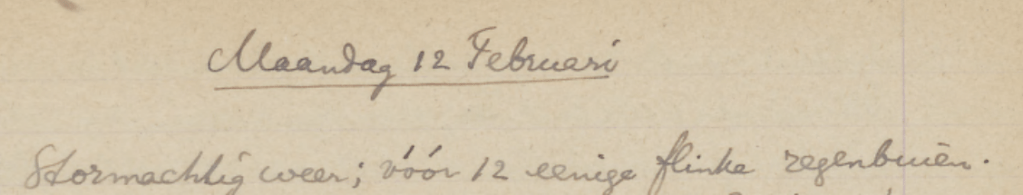 Maandag 12 Februari
Stormachtig weer; vóór 12 eenige flinke regenbuien.